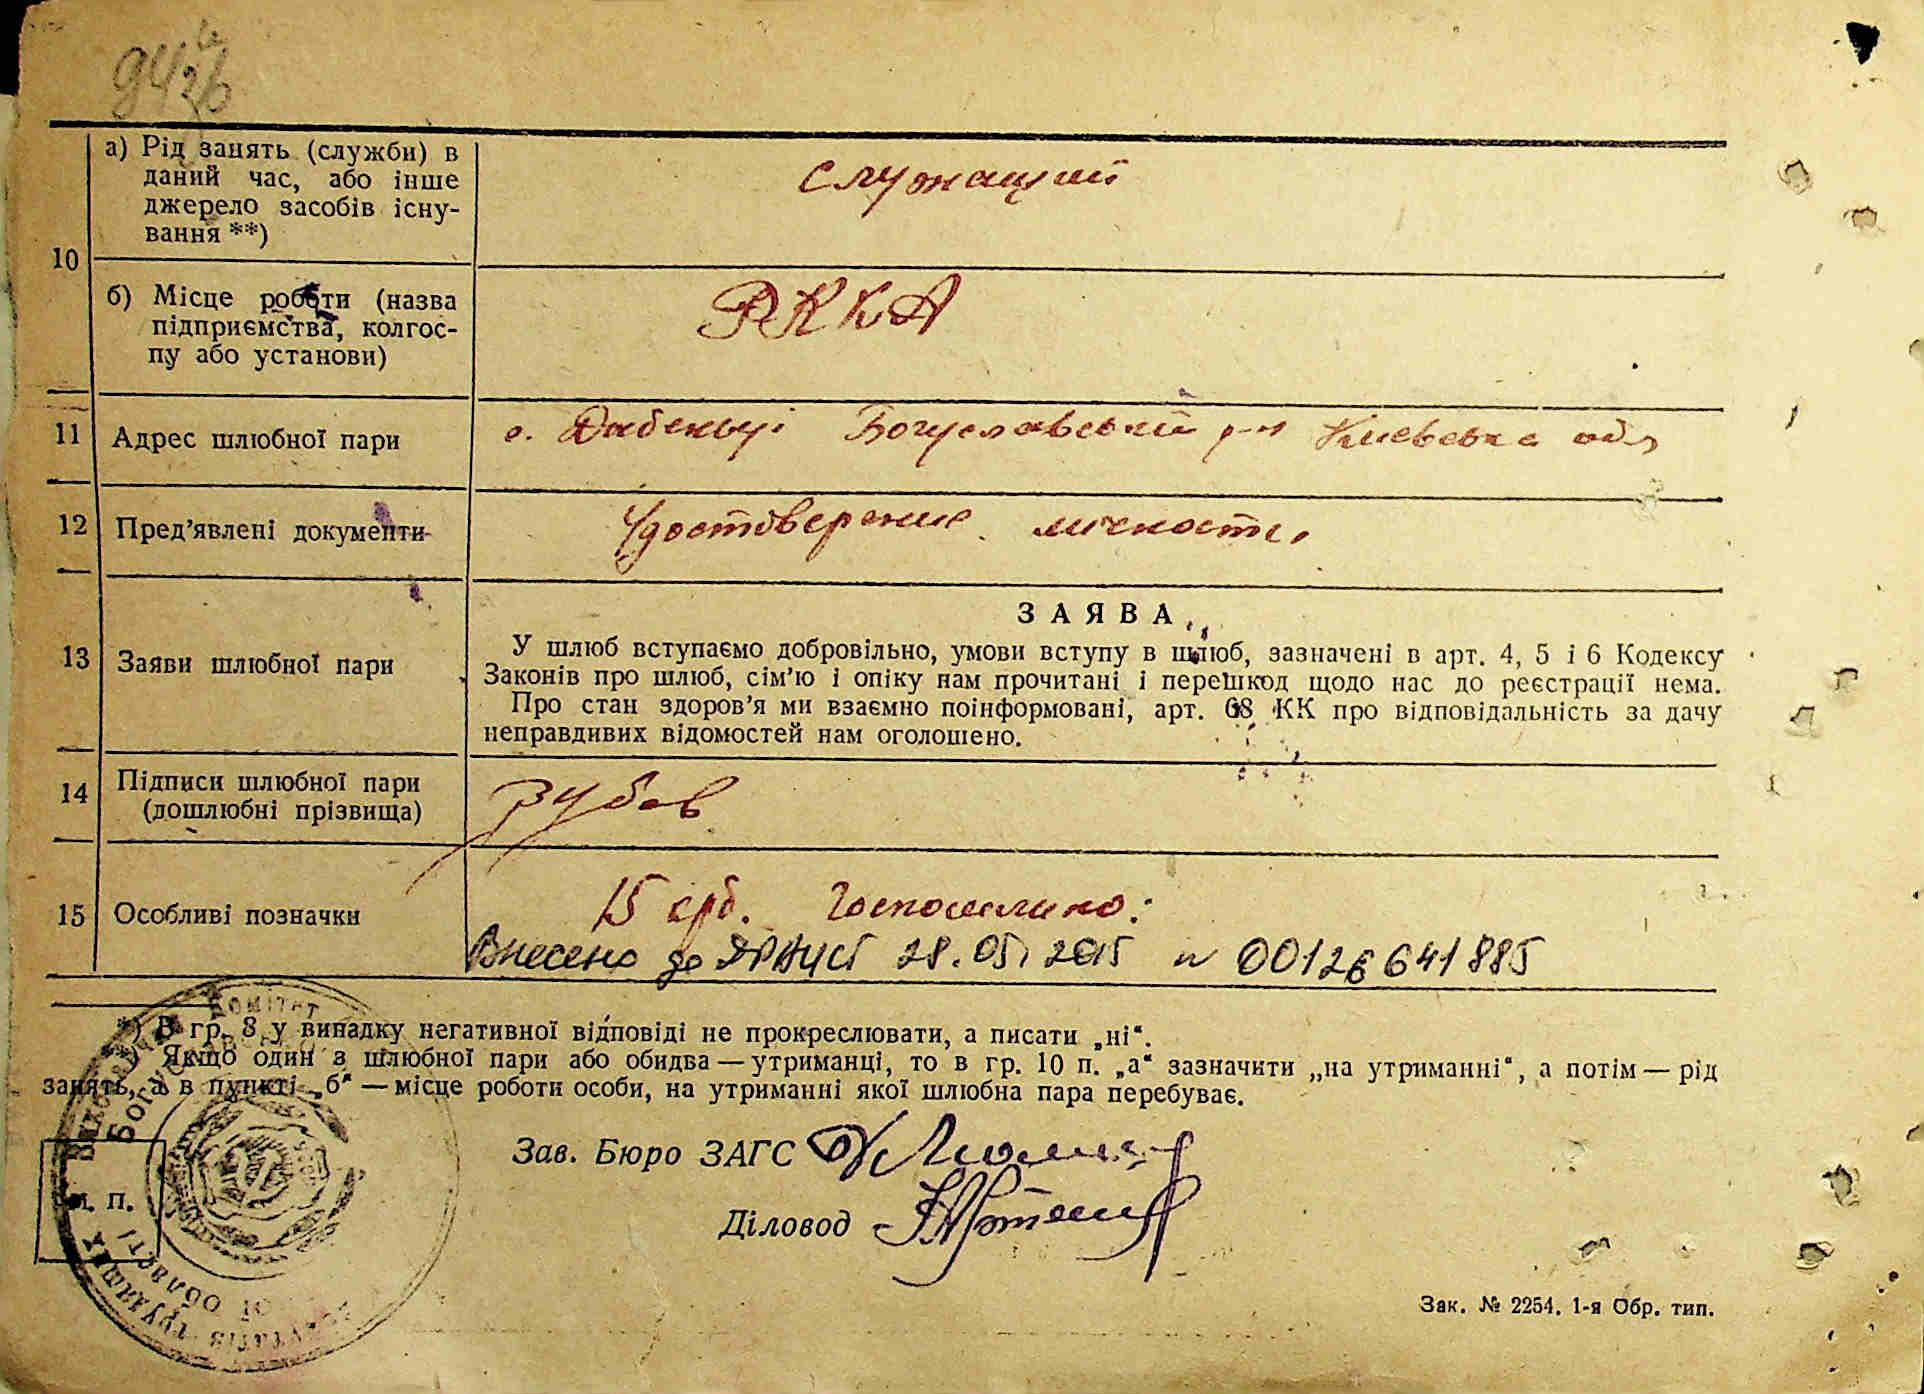 10
а) Рід занять (служби) в
даний час, або інше
джерело засобів існу-
вання **)
служащий
б) Місце роботи (назва
підприємства, колгос-
пу або установи)
РККА
11 Адрес шлюбної пари
с. Дибенці Богуславський р-н Киевська обл
12 Пред'явлені документи
Удостоверение личности
13 Заяви шлюбної пари
ЗАЯВА
У шлюб вступаємо добровільно, умови вступу в шлюб, зазначені в арт. 4, 5 і 6 Кодексу
Законів про шлюб, сім'ю і опіку нам прочитані і перешкод щодо нас до реєстрації нема.
Про стан здоров'я ми взаємно поінформовані, арт. 68 КК про відповідальність за дачу
неправдивих відомостей нам оголошено.
14 Підписи шлюбної пари
(дошлюбні прізвища)
Зубов
15 Особливі позначки
15 крб. Госпошлино.
Внесено до ДРАЦСГ 28.05.2015 N 00126641885
*) В гр. 8 у випадку негативної відповіді не прокреслювати, а писати „ні“.
**) Якщо один з шлюбної пари або обидва — утриманці, то в гр. 10 п. „а“ зазначити „на утриманні“, а потім — рід
занять, а в пункті „б“ — місце роботи особи, на утриманні якої шлюбна пара перебуває.
Зав. Бюро ЗАГС
Діловод
М. П.
комітет
трудящих
області
Зак. № 2254. 1-я Обр. тип.